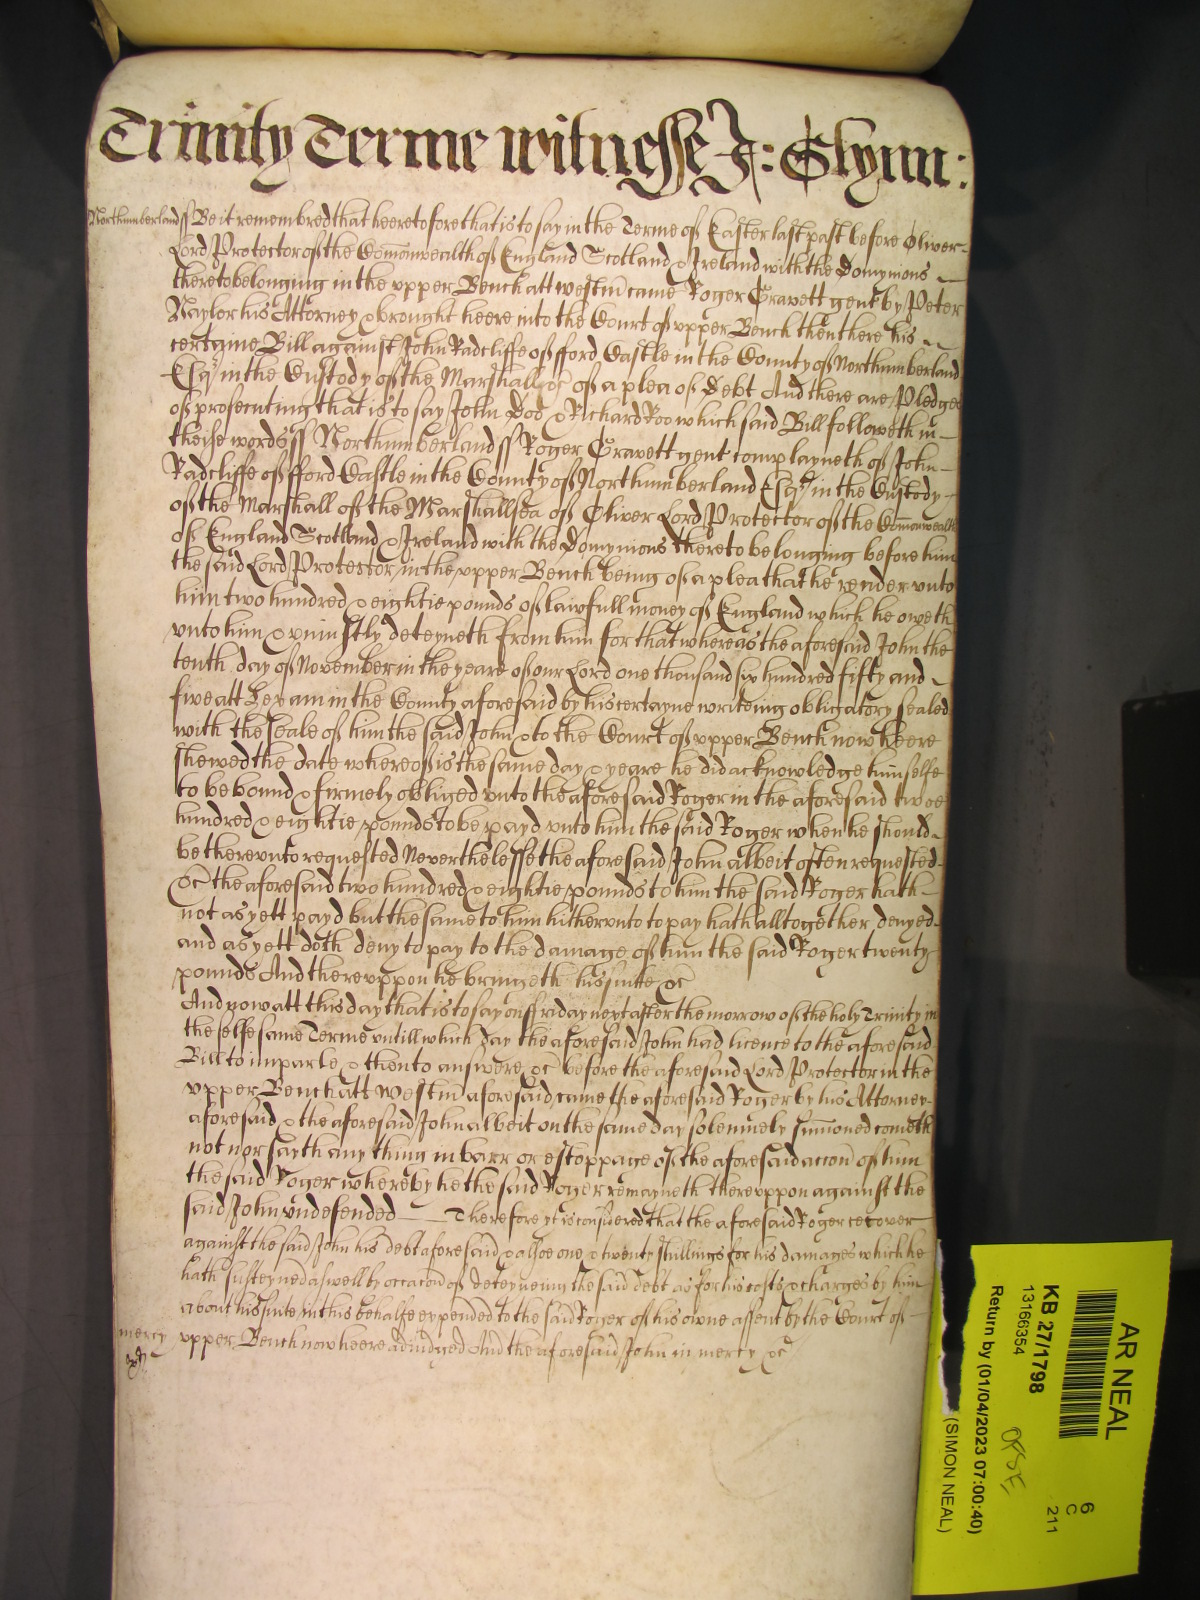 Trinity Terme witnesse J: Glynn:
Northumberland ss Be it remembred that heeretofore that is to say in the Terme of Easter last past before Oliver
Lord Protector of the Comonwealth of England Scotland & Ireland with the Domynions
thereto belonging in the vpper Bench att Westm came Roger Gravett gent by Peter
Naylor his Attorney & brought heere into the Court of vpper Bench then there his
certaine Bill against John Radcliffe of fford Castle in the County of Northumberland
Esqr in the Custody of the Marshall &c of a plea of Debt And there are Pledges
of prosecuting that is to say John Doo & Richard Roo which said Bill followeth in
theise words ss Northumberland ss Roger Gravett gent complayneth of John
Radcliffe of fford Castle in the County of Northumberland Esqr in the Custody
of the Marshall of the Marshallsea of Oliver Lord Protector of the Comonwealth
of England Scotland & Ireland with the Domynions thereto belonging before him
the said Lord Protector in the vpper Bench being of a plea that he render vnto
him two hundred & eightie pounds of lawfull money of England which he oweth
vnto him & vniustly deteyneth from him for that whereas the aforesaid John the
tenth day of November in the yeare of our Lord one thousand six hundred fifty and
five att Hexam in the County aforesaid by his certayne writeing obligatory sealed
with the seale of him the said John & to the Court of vpper Bench now heere
shewed the date whereof is the same day & yeare he did acknowledge himselfe
to be bound & firmely obliged vnto the aforesaid Roger in the aforesaid twoe
hundred & eightie pounds to be payd vnto him the said Roger when he should
be therevnto requested Neverthelesse the aforesaid John albeit often requested
&c the aforesaid two hundred & eightie pounds to him the said Roger hath
not as yett payd but the same to him hithervnto to pay hath alltogether denyed
and as yett doth deny to pay to the damage of him the said Roger twenty
pounds And therevppon he bringeth his suite &c
And now att this day that is to say on ffriday next after the morrow of the holy Trinity in
the selfe same Terme vntill which day the aforesaid John had licence to the aforesaid
Bill to imparle & then to answere &c before the aforesaid Lord Protector in the
vpper Bench att Westm aforesaid came the aforesaid Roger by his Attorney
aforesaid & the aforesaid John albeit on the same day solemnely sumoned cometh
not nor sayth any thing in barr or estoppage of the aforesaid accon of him
the said Roger whereby he the said Roger remayneth therevppon against the
said John vndefended Therefore yt is considered that the aforesaid Roger recover
against the said John his debt aforesaid & alsoe one & twenty shillings for his damages which he
hath susteyned aswell by occacon of deteyneing the said debt as for his costs & charges by him
about his suite in this behalfe expended to the said Roger of his owne assent by the Court of
mercy vpper Bench now heere adiudged And the aforesaid John in mercy &c
AR NEAL
KB 27/1798
13166354
Return by (01/04/2023 07:00:40)
(SIMON NEAL)
6
C
211